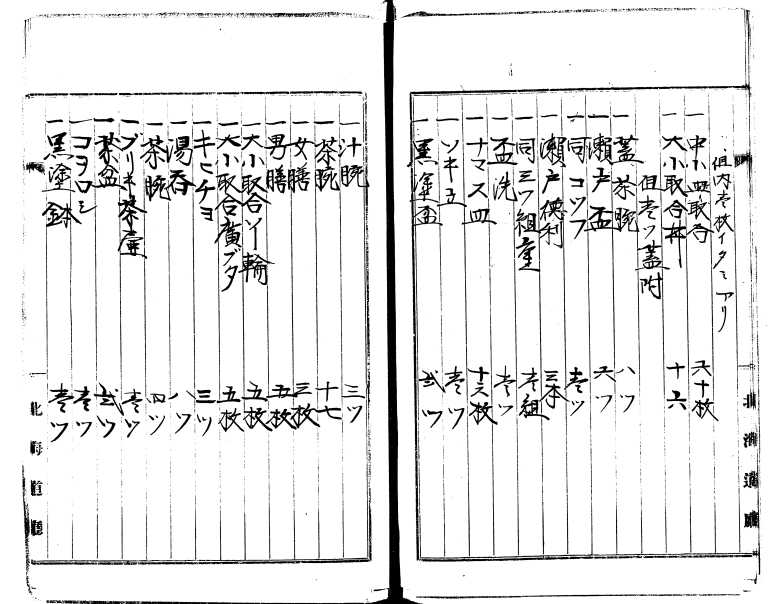 但内壱枚イタミアリ
一中小皿取合 六十枚
一大小取合丼 十六
但壱ツ蓋附
一蓋茶碗 八ツ
一瀬戸盃 六ツ
一同コツフ 壱ツ
一瀬戸徳利 三本
一同三ツ組重 壱組
一盃洗 壱ツ
一ナマス皿 十六枚
一ソキ立 壱ツ
一黒塗盆 弐ツ
北海道廳
一汁碗 三ツ
一茶碗 十七
一女膳 三枚
一男膳 五枚
一大小取合ソー輪 五枚
一大小取合廣ブタ 五枚
一キヒチヨ 三ツ
一湯呑 八ツ
一茶碗 四ツ
一ブリキ茶壷 壱ツ
一茶盆 弐ツ
一コヲロシ 壱ツ
一黒塗鉢 壱ツ
北海道廳